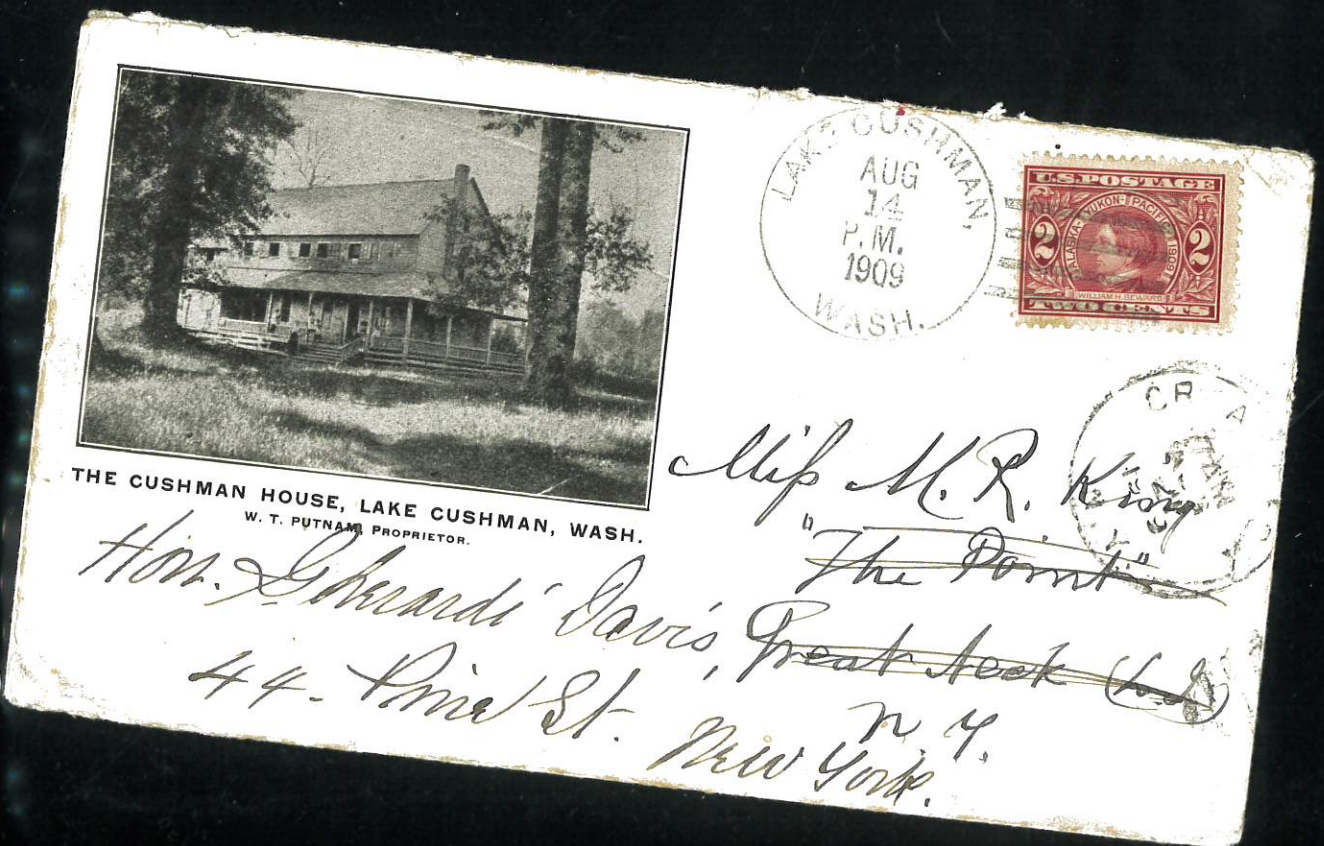 THE CUSHMAN HOUSE, LAKE CUSHMAN, WASH.
W. T. PUTNAM, PROPRIETOR.
LAKE CUSHMAN,
AUG
14
P.M.
1909
WASH.
U.S. POSTAGE
2 ALASKA-YUKON-PACIFIC 1909 2
WILLIAM H. SEWARD
TWO CENTS
Miss M. R. King
"The Point"
Great Neck (L.I.)
N. Y.
Hon. Gherardi Davis,
44 - Pine St.
New York.